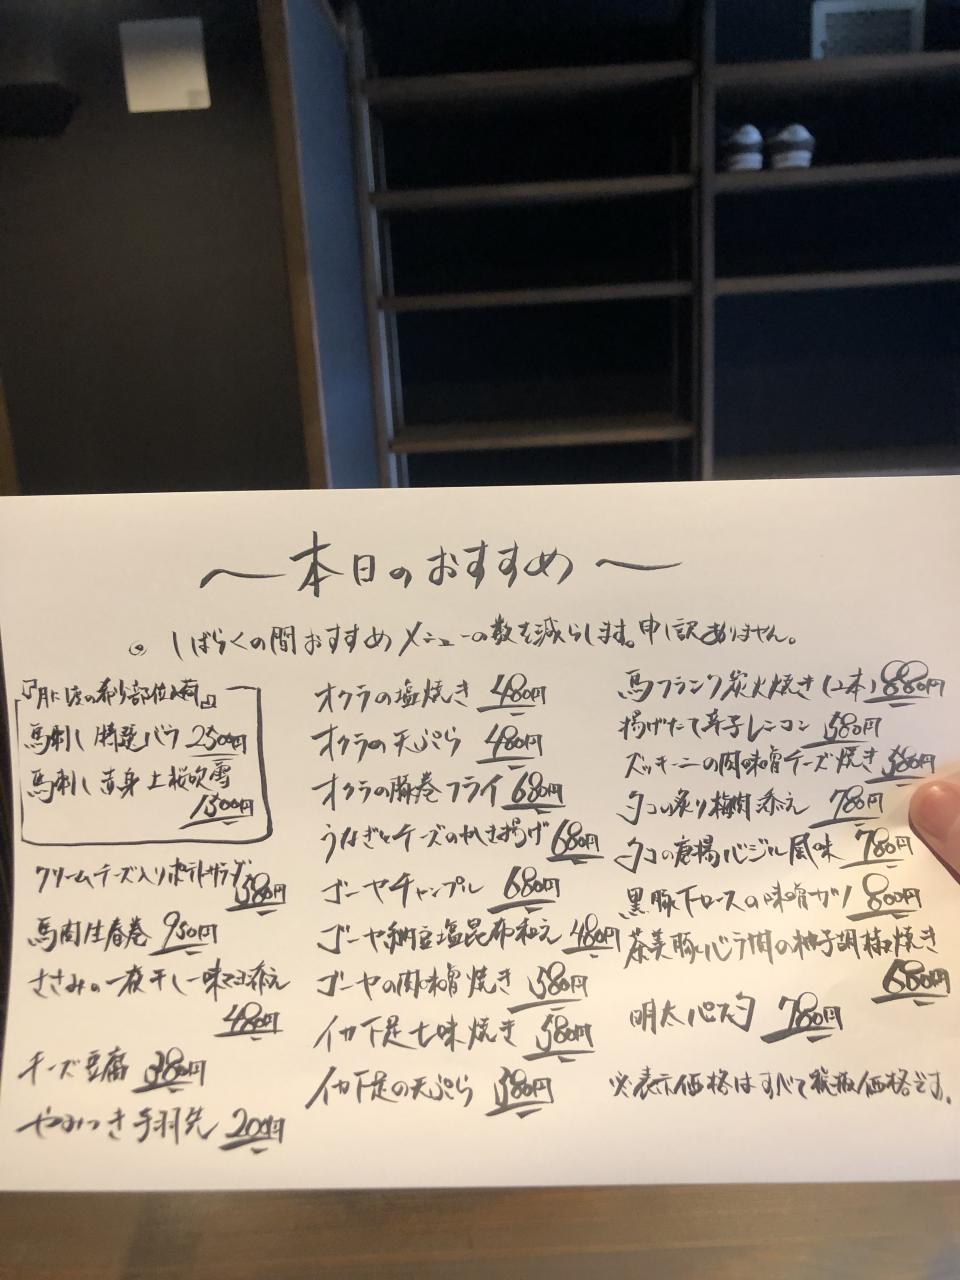 〜本日のおすすめ〜
◎ しばらくの間おすすめメニューの数を減らします。申し訳ありません。
『月に1度の希少部位入荷』
馬刺し 特選バラ 2500円
馬刺し 赤身上桜吹雪
1500円
クリームチーズ入りポテトサラダ 580円
馬肉生春巻 950円
ささみの一夜干し 一味マヨ添え
480円
チーズ豆腐 380円
やみつき手羽先 200円
オクラの塩焼き 480円
オクラの天ぷら 480円
オクラの豚巻フライ 680円
うなぎとチーズのかき揚げ 680円
ゴーヤチャンプル 680円
ゴーヤ納豆塩昆布和え 480円
ゴーヤの肉味噌焼き 580円
イカ下足七味焼き 580円
イカ下足の天ぷら 580円
馬フランク炭火焼き(2本) 880円
揚げたて辛子レンコン 580円
ズッキーニの肉味噌チーズ焼き 580円
タコの炙り梅肉添え 780円
タコの唐揚バジル風味 780円
黒豚下ロースの味噌カツ 800円
茶美豚バラ肉の柚子胡椒焼き
680円
明太パスタ 780円
※表示価格はすべて税抜価格です。